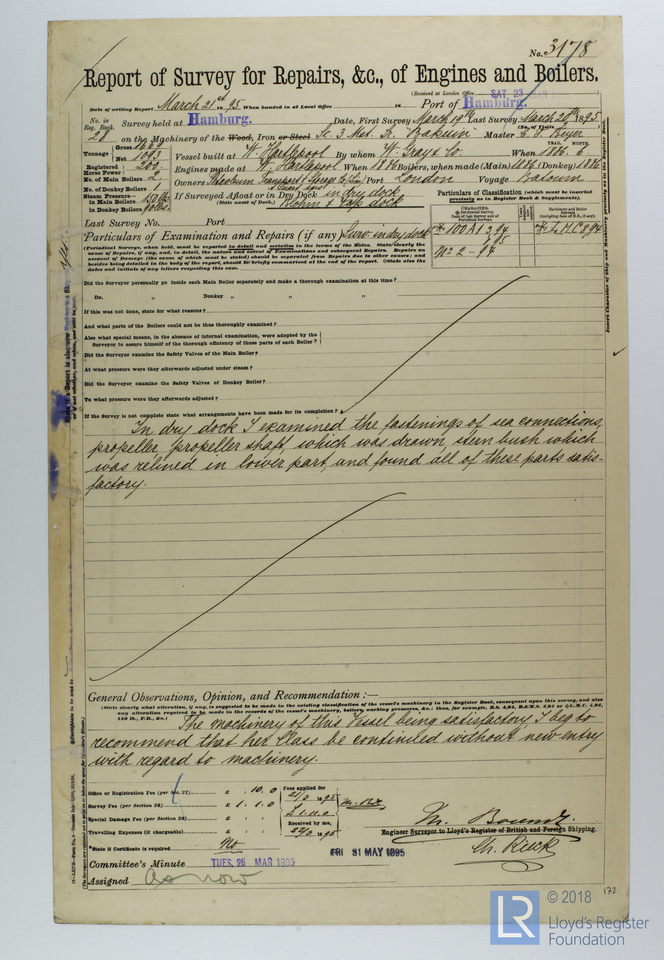 No. 3178
Report of Survey for Repairs, &c., of Engines and Boilers.
(Received at London Office SAT. 23 MAR
Date of writing Report March 21st 95 When handed in at Local Office 18 Port of Hamburg.
No. in Reg. Book. Survey held at Hamburg. Date, First Survey March 19th Last Survey March 20th 1895
(No. of Visits )
28 on the Machinery of the Wood, Iron or Steel Sc. 3 Mst. Bakuin Master
Tonnage Gross 1669
Net 1093 Vessel built at W. Hartlepool By whom W. Gray & Co. When 1886. 6
Registered Horse Power 200 Engines made at W. Hartlepool When 1886 Boilers, when made (Main) 1886 (Donkey) 1886
No. of Main Boilers 2 Owners Port London Voyage Batoum
No. of Donkey Boilers 1
Steam Pressure in Main Boilers 150 lbs If Surveyed Afloat or in Dry Dock in Dry dock
in Donkey Boilers (State name of Dock.) dock
Particulars of Classification (which must be inserted precisely as in Register Book & Supplements).
Last Survey No. Port
Particulars of Examination and Repairs (if any) Surv. in dry dock
100 A1 3,94
7,95
No 2 - 94
LMC 8,94
(Periodical Surveys, when held, must be reported in detail and seriatim in the terms of the Rules. State clearly the cause of Repairs, if any, and, in detail, the nature and extent of Examinations and subsequent Repairs. Repairs on account of Damage (the cause of which must be stated) should be separated from Repairs due to other causes; and besides being detailed in the body of the report, should be briefly summarised at the end of the report. (State also the dates and initials of any letters respecting this case.)
Did the Surveyor personally go inside each Main Boiler separately and make a thorough examination at this time?
Do. „ Donkey „ „ „
If this was not done, state for what reasons?
And what parts of the Boilers could not be thoroughly examined?
Also what special means, in the absence of internal examination, were adopted by the
Surveyor to assure himself of the thorough efficiency of those parts of each Boiler?
Did the Surveyor examine the Safety Valves of the Main Boiler?
At what pressure were they afterwards adjusted under steam?
Did the Surveyor examine the Safety Valves of Donkey Boiler?
To what pressure were they afterwards adjusted?
If the Survey is not complete state what arrangements have been made for its completion?
In dry dock I examined the fastenings of sea connections,
propeller, propeller shaft, which was drawn, stern bush which
was relined in lower part, and found all of these parts satis-
factory.
General Observations, Opinion, and Recommendation:—
(State clearly what alteration, if any, is suggested to be made in the existing classification of the vessel's machinery in the Register Book, consequent upon this survey, and also any alteration required to be made in the records of the vessel's machinery, boilers, working pressures, &c.; thus, for example, B.S. 4,94, B.&M.S. 4,94 or L.M.C. 4,94, 140 lb., F.D., &c.)
The machinery of this Vessel being satisfactory I beg to
recommend that her Class be continued without new entry
with regard to machinery.
Office or Registration Fee (per Sec. 27) £ 10. 0 Fees applied for
Survey Fee (per Section 28) £ 1. 1. 0 21/3 1895
Special Damage Fee (per Section 28) £
Travelling Expenses (if chargeable) £ Received by me, 22/3 1895
State if Certificate is required No
Engineer Surveyor to Lloyd's Register of British and Foreign Shipping.
FRI 31 MAY 1895
Committee's Minute TUES. 26 MAR 1895
Assigned As now
172
LR
© 2018
Lloyd's Register
Foundation